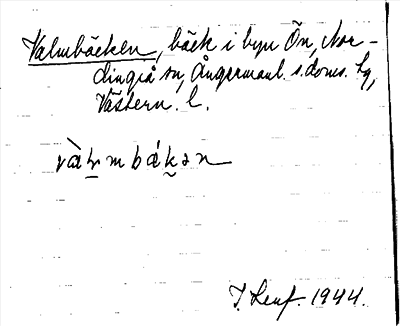 Valmbäcken, bäck i byn Ön, Nor-
dingrå sn, Ångermanl. s. doms. hg,
Västern. l.
I. Leuf. 1944.